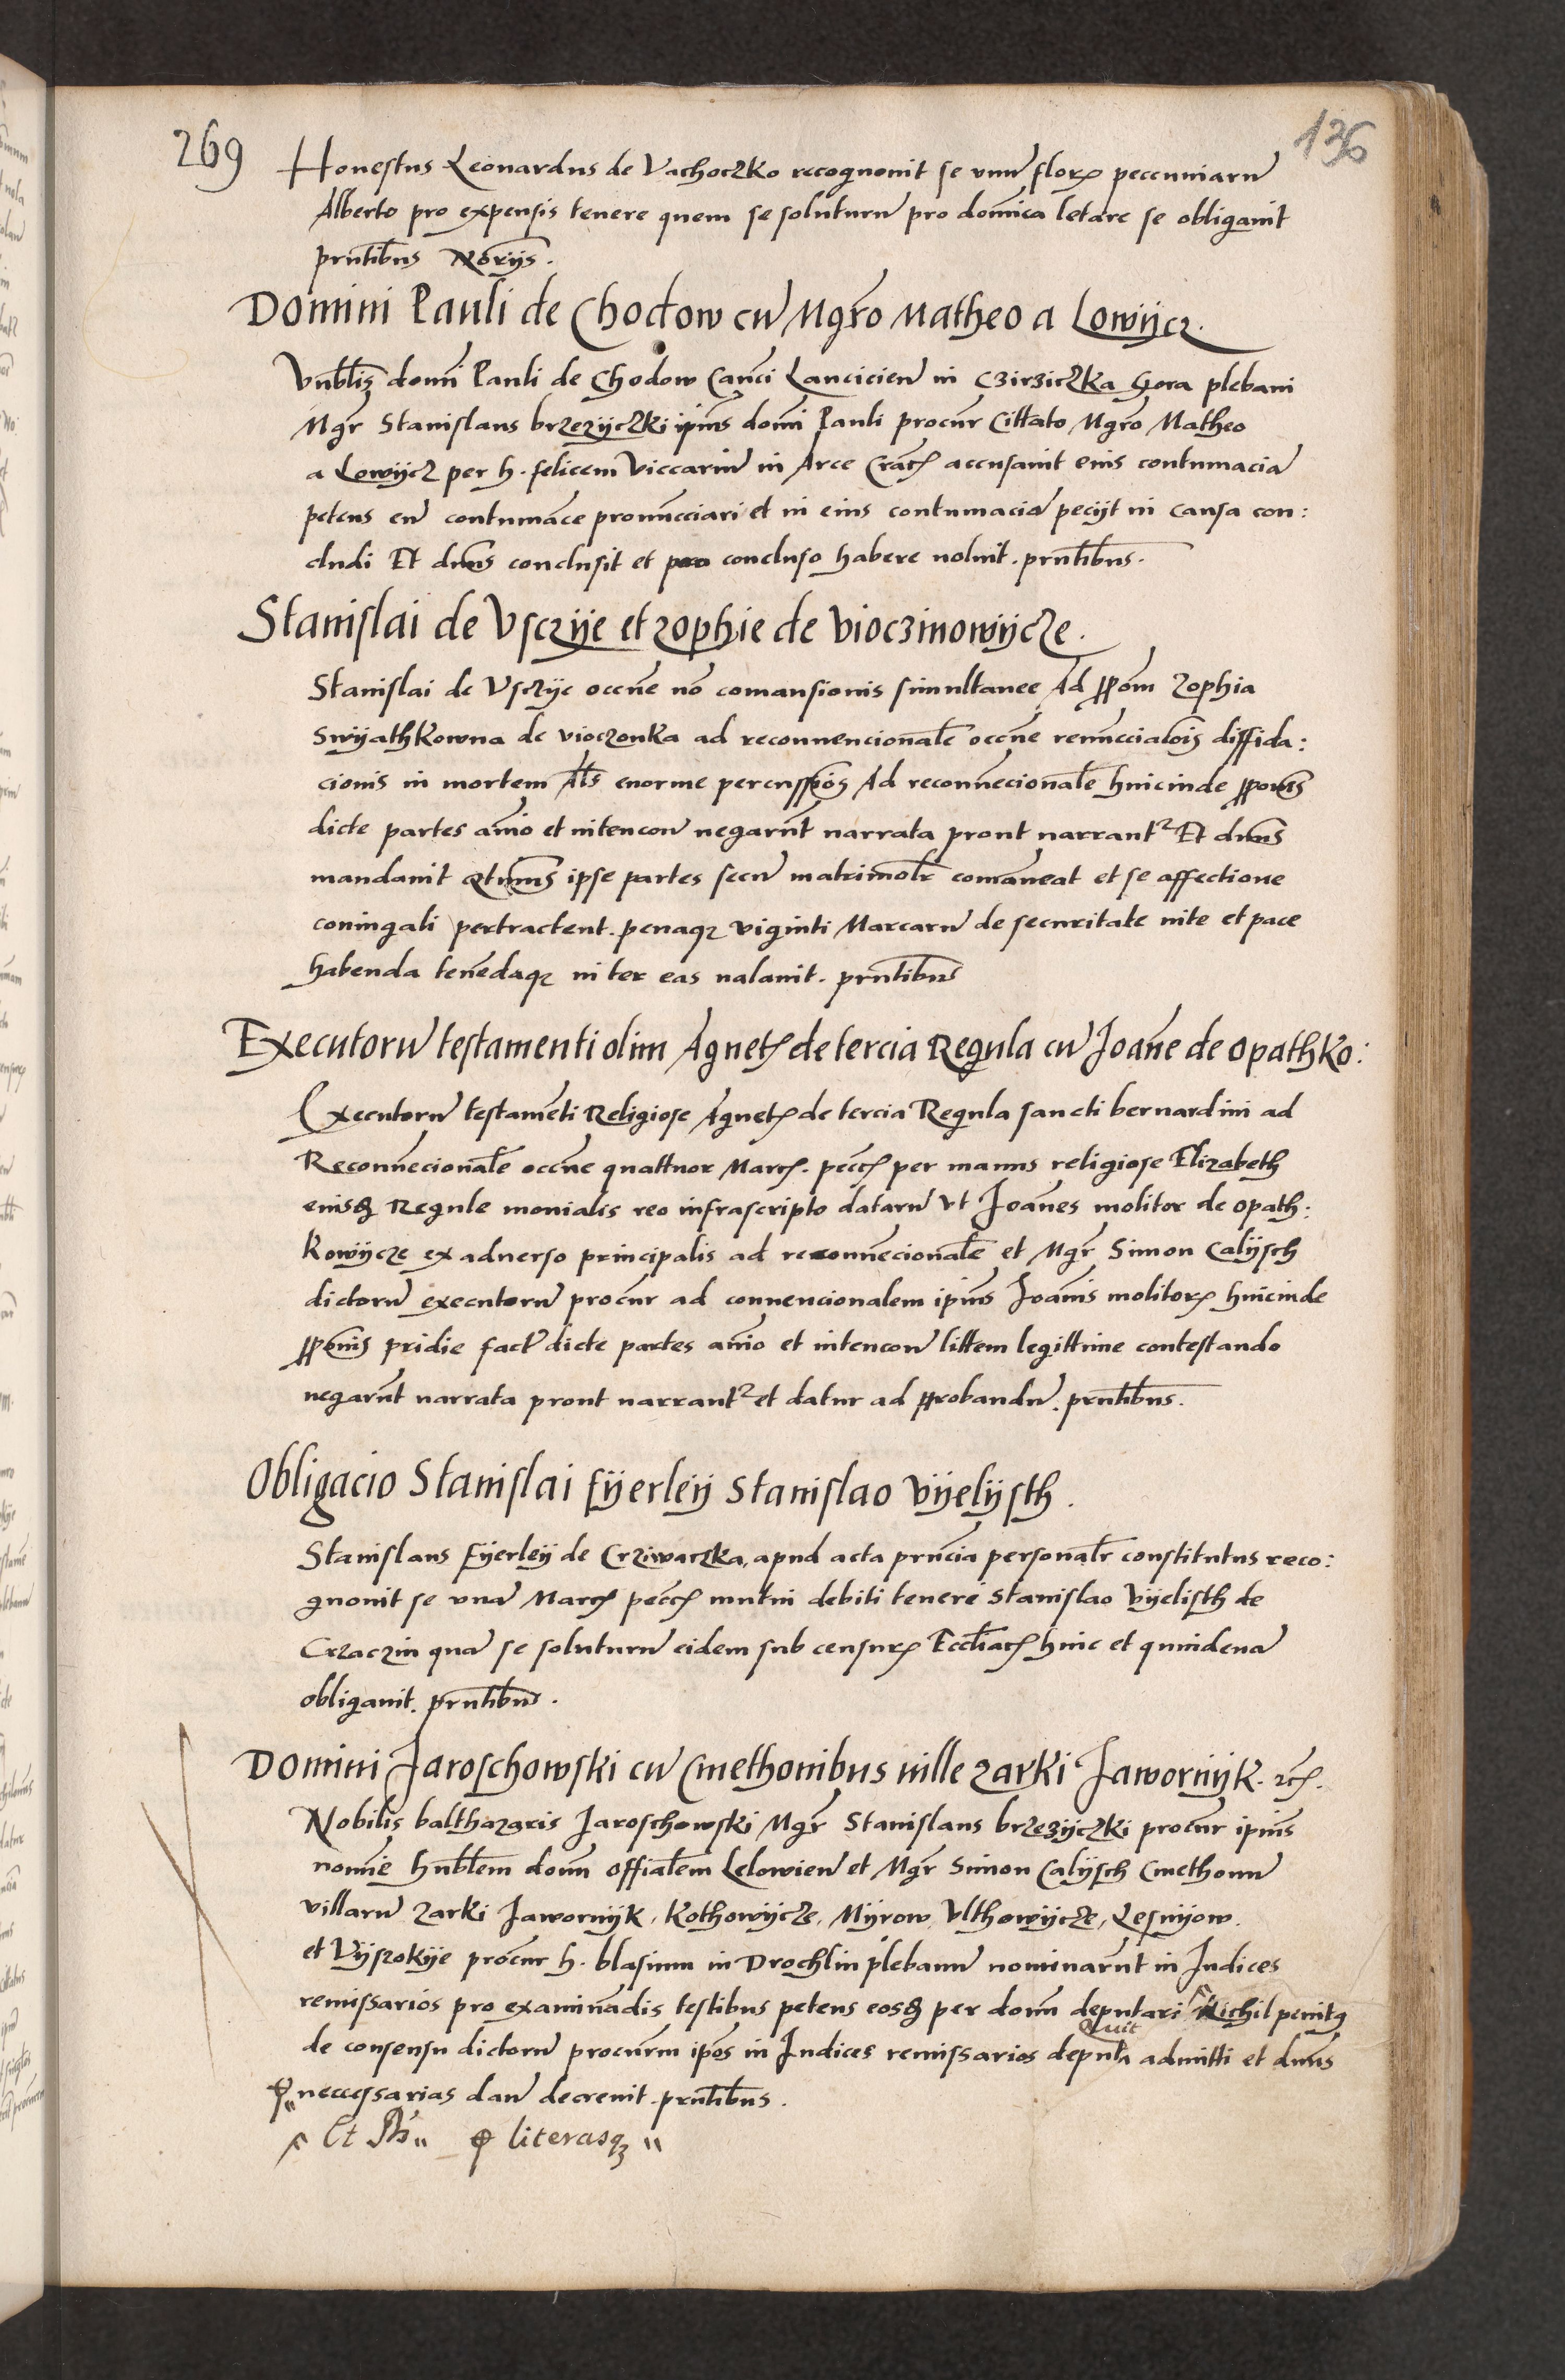 269
136
Honestus Leonardus de Vachoczko recognouit se vnū florꝫ peccuniarū
Alberto pro expensis tenere quem se soluturū pro domīca letare se obligauit
pn̄tibus No͞rijs.
Domini Pauli de Chodow cū Mgr̄o Matheo a Lowijcz.
Vn̄blis domī Pauli de Chodow Canci Lancicieñ in Czirziczka Gora plebani
Mgr̄ Stanislaus brzezijczki ipīus domī Pauli procur̄ Cittato Mgr̄o Matheo
a Lowijcz per h. felicem Viccariū in Arce Crac̄ accusauit eius contumaciā
petens eū contumāce pronūcciari et in eius contumaciā pecijt in causa con:
cludi Et dn̄us conclusit et pro concluso habere voluit. pn̄tibus.
Stanislai de Vsczije et zophie de vioczinowijcze.
Stanislai de Vsczije occn̄e nō comansionis simultanee Ad ꝓpom̄ zophia
Swijathkowna de vioczonka ad reconuencional̄e occn̄e renūcciatōis diffida:
cionis in mortem Al̄s enorme percussiōis Ad reconn̄ecional̄e hincinde ꝓpon̄is
dicte partes an̄io et intencoñ negarūt narrata prout narrant² Et dn̄us
mandauit qtm̄us ipse partes secū matrimol̄r comāneāt et se affectione
coniugali pertractent. penaqꝫ viginti Marcarū de securitate vite et pace
habenda tenēdaqꝫ inter eas valauit. pn̄tibus
Executorū testamenti olim Agnet̄ de tercia Regula cū Joāne de opathko:
Executorū testamēti Religiose Agnet̄ de tercia Regula sancti bernardini ad
Reconn̄ecional̄e occn̄e quattuor Marc̄. pecc̄ per manus religiose Elizabeth
eiusdꝫ Regule monialis reo infrascripto datarū vt Joānes molitor de opath:
kowijcze ex aduerso principalis ad reconn̄ecional̄e et Mgr̄ Simon Calijsch
dictorū executorū procur̄ ad conuencionalem ipīus Joānis molitorꝫ hincinde
ꝓpon̄is pridie fact̄ dicte partes an̄io et intencoñ littem legittime contestando
negarūt narrata prout narrant² et datur ad ꝓbrobandū. pn̄tibus.
Obligacio Stanislai fijerleij Stanislao Vijelijsth.
Stanislaus fijerleij de Crziwaczka, apud acta prn̄cia personal̄r constitutus reco:
gnouit se vnā Marc̄ pecc̄ mutui debiti teneri Stanislao Vijelisth de
Crzaczin quā se soluturū eidem sub censurꝫ Eccl̄iac̄ hinc et quindenā
obligauit. pn̄tibus.
Domini Jaroschowski cū Cmethonibus ville zarki Jawornijk. ⁊c̄.
Nobilis balthazaris Jaroschowski Mgr̄ Stanislaus brzezijczki procur̄ ipīus
nomīe hn̄blem dom̄ offial̄em Lelowieñ et Mgr̄ Simon Calijsch Cmethonū
villarū zarki Jawornijk, Kothowijcze, Mijrow, Vlthowijcze, Lesnijow.
et Vijszokije procur̄ h. blasium in Drochlin plebanū nominarūt in Judices
remissarios pro examinādis testibus petens eosdꝫ per dom̄ deputari Nichil penitꝰ
de consensu dictorū procurm̄ ipōs in Judices remissarios deputa admitti et dn̄us
uit
neccessarias dan̄ decreuit. pn̄tibus.
Et Ds̄ literasqꝫ